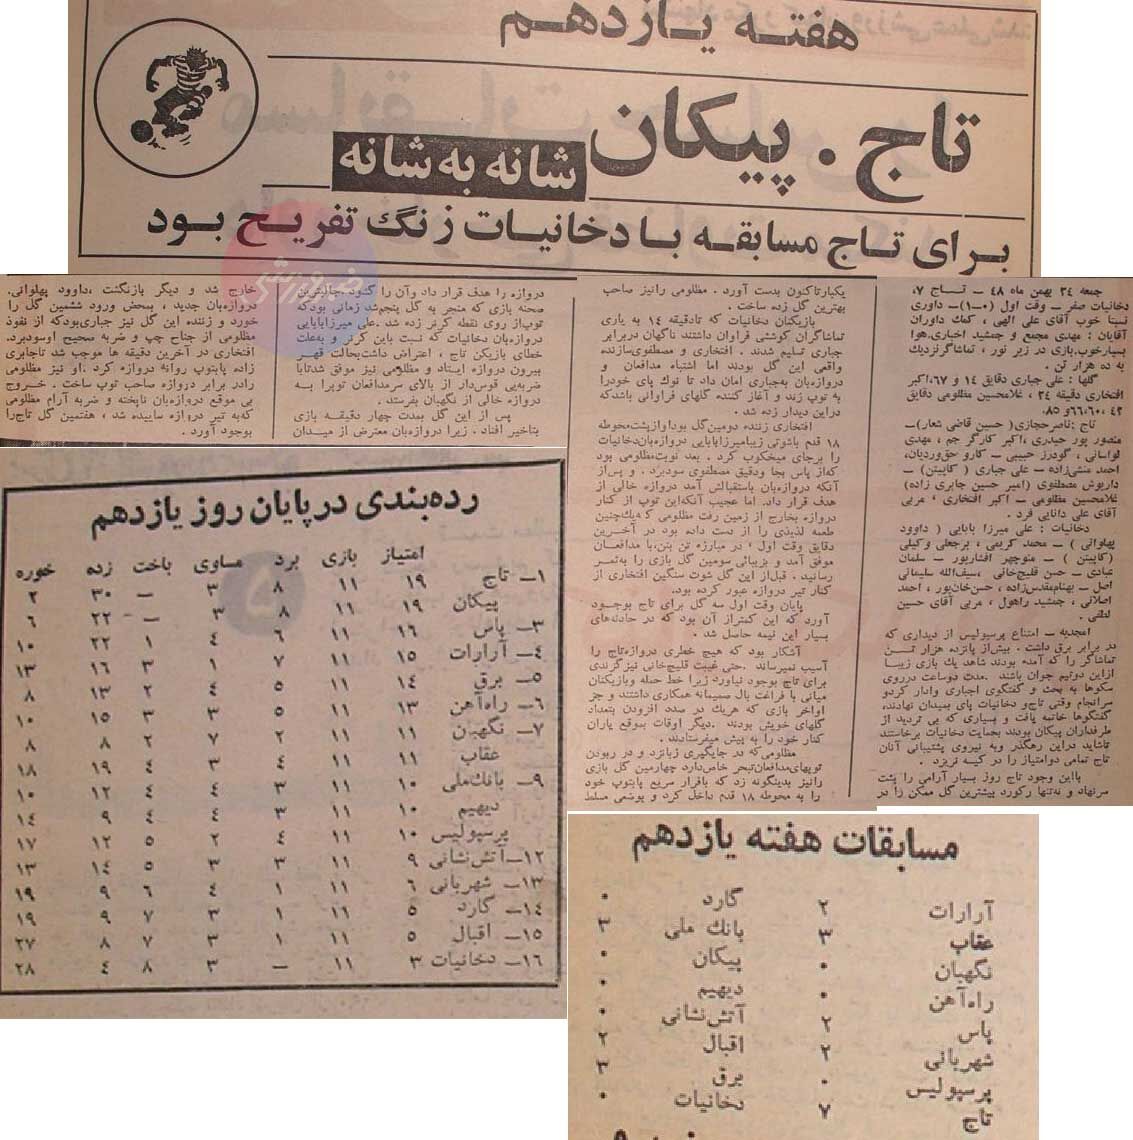 هفته یازدهم
تاج . پیکان
شانه به شانه
برای تاج مسابقه با دخانیات زنگ تفریح بود
جمعه ۲۴ بهمن ماه ۴۸ ــ تــاج ۷،
دخانیات صفر ــ وقت اول (۰ــ۱)ــ داوری
نسبتا خوب آقای علی الهی ، کمك داوران
آقایان : مهدی مجمع و جمشید اخباری.هوا
بسیارخوب.بازی در زیر نور ، تماشاگرنزدیك
به ده هزار تن .
گلها : علی جباری دقایق ۱۴ و ۶۷،اکبر
افتخاری دقیقه ۲۴ ، غلامحسین مظلومی دقایق
۴۲،۶۰،۶۶و ۸۵.
تاج :ناصرحجازی( حسین قاضی شعار)ــ
منصور پور حیدری ،اکبر کارگر جم ، مهدی
لواسانی ، گودرز حبیبی ــ کارو حقوردیان،
احمد منشی‌زاده ــ علی جباری ( کاپیتن) ــ
داریوش مصطفوی (امیر حسین جابری زاده)
غلامحسین مظلومی ــ اکبر افتخاری ، مربی
آقای علی دانایی فرد .
دخانیات : علی میرزا بابایی ( داوود
پهلوانی ) ــ محمد کریمی ، برجعلی وکیلی
(کاپیتن ) ــ منوچهر افشارپور ــ سلمان
عبادی ــ حسن قلیچ‌خانی ،سیف‌الله سلیمانی
اصل ــ بهنام‌مقدس‌زاده ، حسن‌خان‌پور ، احمد
اصلانی ، جمشید راهول ، مربی آقای حسین
لطفی .
امجدیه ــ امتناع پرسپولیس از دیداری که
در برابر برق داشت . بیش‌از پانزده هزار تــن
تماشاگر را که آمده بودند شاهد یك بازی زیبــا
ازاین دوتیم جوان باشند .مدت دوساعت درروی
سکوها به بحث و گفتگوی اجباری وادار کردو
سرانجام وقتی تاج‌و دخانیات پای بمیدان نهادند،
گفتگوها خاتمه یافت و بسیاری که بی تردید از
طرفداران پیکان بودند بحمایت دخانیات برخاستند
تاشاید دراین رهگذر وبه نیروی پشتیبانی آنان
تاج تمامی دوامتیاز را در کیسه نریزد .
بااین وجود تاج روز بسیار آرامی را پشت
سرنهاد و نه‌تنها رکورد بیشترین گل ممکن را در
یکبارتاکنون بدست آورد . مظلومی رانیز صاحب
بهترین گل زده ساخت .
بازیکنان دخانیات که تادقیقه ۱۴ به یاری
تماشاگران کوششی فراوان داشتند ناگهان دربرابر
جباری تسلیم شدند . افتخاری و مصطفوی‌سازنده
واقعی این گل بودند اما اشتباه مدافعان و
دروازه‌بان به‌جباری امان داد تا نوك پای خودرا
به توپ زند و آغاز کننده گلهای فراوانی باشدکه
دراین دیدار زده شد .
افتخاری زننده دومین‌گل بود‌او‌ازپشت‌محوطه
۱۸ قدم باشوتی زیبا‌میرزابابایی دروازه‌بان‌دخانیات
را برجای میخکوب کرد . بعد نوبت‌مظلومی بود
که‌از پاس بجا ودقیق مصطفوی سودبرد . و پس‌از
آنکه دروازه‌بان باستقبالش آمد دروازه خالی از
هدف قرار داد. اما عجیب آنکه‌این توپ از کنار
دروازه بخارج از زمین رفت مظلومی که‌یك‌چنین
طعمه لذیذی را از دست داده بود در آخریــن
دقایق وقت اول ، در مبارزه تن بتن،با مدافعــان
موفق آمد و بزیبائی سومین گل بازی را به‌ثمــر
رسانید . قبل‌از این گل شوت سنگین افتخاری از
کنار تیر دروازه عبور کرده بود.
پایان وقت اول سه گل برای تاج بوجــود
آورد که این کمتراز آن بود که در حادثه‌های
بسیار این نیمه حاصل شد .
آشکار بود که هیچ خطری دروازه‌تاج را
آسیب نمیرساند .حتی غیبت قلیچ‌خانی نیزگزندی
برای تاج بوجود نیاورد زیرا خط حمله وبازیکنان
میانی با فراغت بال صمیمانه همکاری داشتند و جز
اواخر بازی که هریك در صدد افزودن بتعداد
گلهای خویش بودند .دیگر اوقات بموقع یاران
کنار خود را به پیش میفرستادند .
مظلومی‌که در جایگیری زبانزد و در ربودن
توپهای‌مدافعان‌تبحر خاص‌دارد چهارمین گل بازی
رانیز بدینگونه زد که بافرار سریع پابتوپ خود
را به محوطه ۱۸ قدم داخل کرد و بوضعی مسلط
دروازه را هدف قرار داد وآن را گشود.جالبترین
صحنه بازی که منجر به گل پنجم‌شد زمانی بودکه
توپ‌از روی نقطه کرنر زده شد .علی میرزابابایی
دروازه‌بان دخانیات که نسبت باین کرنر و به‌علت
خطای بازیکن تاج ، اعتراض داشت‌بحالت قهــر
بیرون دروازه ایستاد و مظلومی نیز موفق شدتابا
ضربه‌یی قوس‌دار از بالای سرمدافعان توپرا بــه
دروازه خالی از نگهبان بفرستد .
پس از این گل بمدت چهار دقیقــه بازی
بتاخیر افتاد. زیرا دروازه‌بان معترض از میــدان
خارج شد و دیگر بازنگشت ،داوود پهلوانی،
دروازه‌بان جدید ، بمحض ورود ششمین گل را
خورد و زننده این گل نیز جباری‌بودکه از نفوذ
مظلومی از جناح چپ و ضربه صحیح اوسودبرد.
افتخاری در آخرین دقیقه ها موجب شد تاجابری
زاده پابتوپ روانه دروازه کرد .او نیز مظلومی
رادر برابر دروازه صاحب توپ ساخت . خــروج
بی موقع دروازه‌بان ناپخته و ضربه آرام مظلومی
که‌به تیر دروازه ساییده شد ، هفتمین گل تاج‌را
بوجود آورد .
رده‌بندی در پایان روز یازدهم
امتیاز بازی برد مساوی باخت زده خورده
۱ــ تاج ۱۹ ۱۱ ۸ ۳ ــ ۳۰ ۲
پیکان ۱۹ ۱۱ ۸ ۳ ــ ۲۲ ۶
۳ــ پاس ۱۶ ۱۱ ۶ ۴ ۱ ۲۲ ۱۰
۴ــ آرارات ۱۵ ۱۱ ۷ ۱ ۳ ۱۶ ۱۳
۵ــ برق ۱۴ ۱۱ ۵ ۴ ۲ ۱۳ ۸
۶ــ راه‌آهن ۱۳ ۱۱ ۵ ۳ ۳ ۱۵ ۱۰
۷ــ نگهبان ۱۱ ۱۱ ۲ ۷ ۲ ۸ ۸
عقاب ۱۱ ۱۱ ۴ ۳ ۴ ۱۹ ۱۸
۹ــ بانك‌ملی ۱۰ ۱۱ ۳ ۴ ۴ ۱۲ ۱۰
دیهیم ۱۰ ۱۱ ۳ ۴ ۴ ۹ ۱۴
پرسپولیس ۱۰ ۱۱ ۴ ۲ ۵ ۱۲ ۱۷
۱۲ــ آتش‌نشانی ۹ ۱۱ ۳ ۳ ۵ ۱۴ ۱۳
۱۳ــ شهربانی ۶ ۱۱ ۱ ۴ ۶ ۹ ۱۹
۱۴ــ گارد ۵ ۱۱ ۱ ۳ ۷ ۹ ۱۹
۱۵ــ اقبال ۵ ۱۱ ۱ ۳ ۷ ۸ ۲۷
۱۶ــ دخانیات ۳ ۱۱ ــ ۳ ۸ ۴ ۲۸
مسابقات هفته یازدهم
آرارات ۲ گارد ۰
عقاب ۳ بانك ملی ۳
نگهبان ۰ پیکان ۰
راه‌آهن ۰ دیهیم ۰
پاس ۲ آتش‌نشانی ۰
شهربانی ۲ اقبال ۲
پرسپولیس ۰ برق ۳
تاج ۷ دخانیات ۰